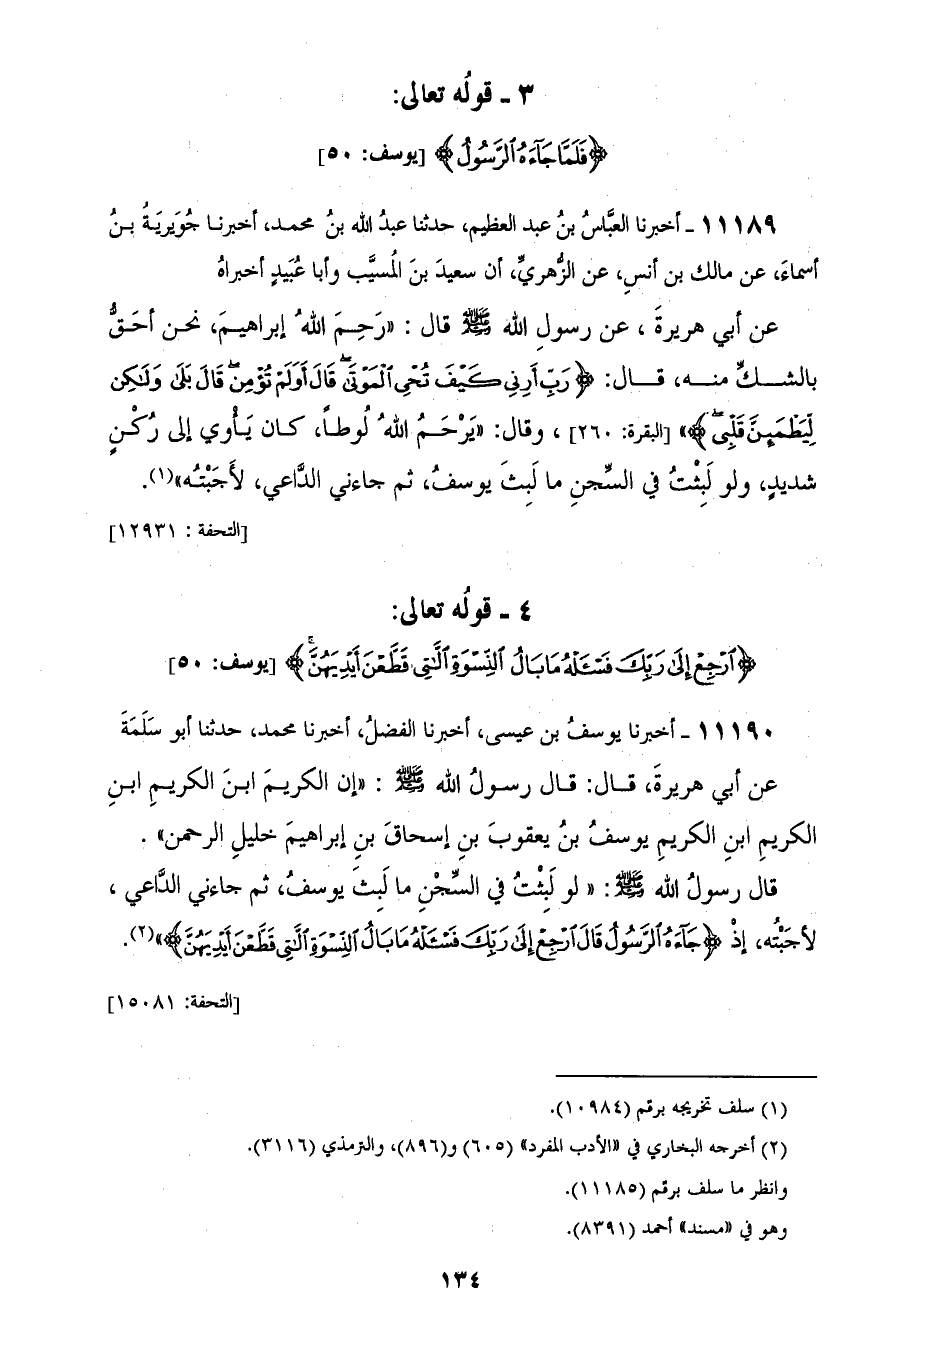 ٣ ـ قولُه تعالى:
﴿فَلَمَّا جَآءَهُ ٱلرَّسُولُ﴾ [يوسف: ٥٠]
١١١٨٩ ـ أخبرنا العبَّاسُ بنُ عبد العظيم، حدثنا عبدُ الله بنُ محمد، أخبرنا جُوَيَريَةُ بنُ
أسماءَ، عن مالك بن أنسٍ، عن الزُّهريِّ، أن سعيدَ بنَ المُسيَّب وأبا عُبَيدٍ أخبراهُ
عن أبي هريرةَ، عن رسولِ الله ﷺ قال: «رَحِمَ اللهُ إبراهيمَ، نحن أحَقُّ
بالشكِّ منه، قال: ﴿رَبِّ أَرِنِى كَيْفَ تُحْىِ ٱلْمَوْتَىٰۖ قَالَ أَوَلَمْ تُؤْمِنۖ قَالَ بَلَىٰ وَلَٰكِن
لِّيَطْمَئِنَّ قَلْبِىۖ﴾» [البقرة: ٢٦٠]، وقال: «يَرْحَمُ اللهُ لُوطاً، كان يَأْوي إلى رُكْنٍ
شديدٍ، ولو لَبِثْتُ في السِّجنِ ما لَبِثَ يوسفُ، ثم جاءني الدَّاعي، لأَجَبْتُه»(١).
[التحفة: ١٢٩٣١]
٤ ـ قولُه تعالى:
﴿ٱرْجِعْ إِلَىٰ رَبِّكَ فَسْـَٔلْهُ مَا بَالُ ٱلنِّسْوَةِ ٱلَّٰتِى قَطَّعْنَ أَيْدِيَهُنَّۚ﴾ [يوسف: ٥٠]
١١١٩٠ ـ أخبرنا يوسفُ بن عيسى، أخبرنا الفضلُ، أخبرنا محمد، حدثنا أبو سَلَمَةَ
عن أبي هريرةَ، قال: قال رسولُ الله ﷺ: «إن الكريمَ ابنَ الكريمِ ابنِ
الكريمِ ابنِ الكريمِ يوسفُ بنُ يعقوبَ بنِ إسحاقَ بنِ إبراهيمَ خليلِ الرحمن».
قال رسولُ الله ﷺ: «لو لَبِثْتُ في السِّجْنِ ما لَبِثَ يوسفُ، ثم جاءني الدَّاعي،
لأجَبْتُه، إذْ ﴿جَآءَهُ ٱلرَّسُولُ قَالَ ٱرْجِعْ إِلَىٰ رَبِّكَ فَسْـَٔلْهُ مَا بَالُ ٱلنِّسْوَةِ ٱلَّٰتِى قَطَّعْنَ أَيْدِيَهُنَّ﴾»(٢).
[التحفة: ١٥٠٨١]
(١) سلف تخريجه برقم (١٠٩٨٤).
(٢) أخرجه البخاري في «الأدب المفرد» (٦٠٥) و(٨٩٦)، والترمذي (٣١١٦).
وانظر ما سلف برقم (١١١٨٥).
وهو في «مسند» أحمد (٨٣٩١).
١٣٤